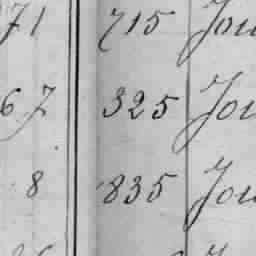 71 715 Jou
67 325 Jou
8 835 Jou